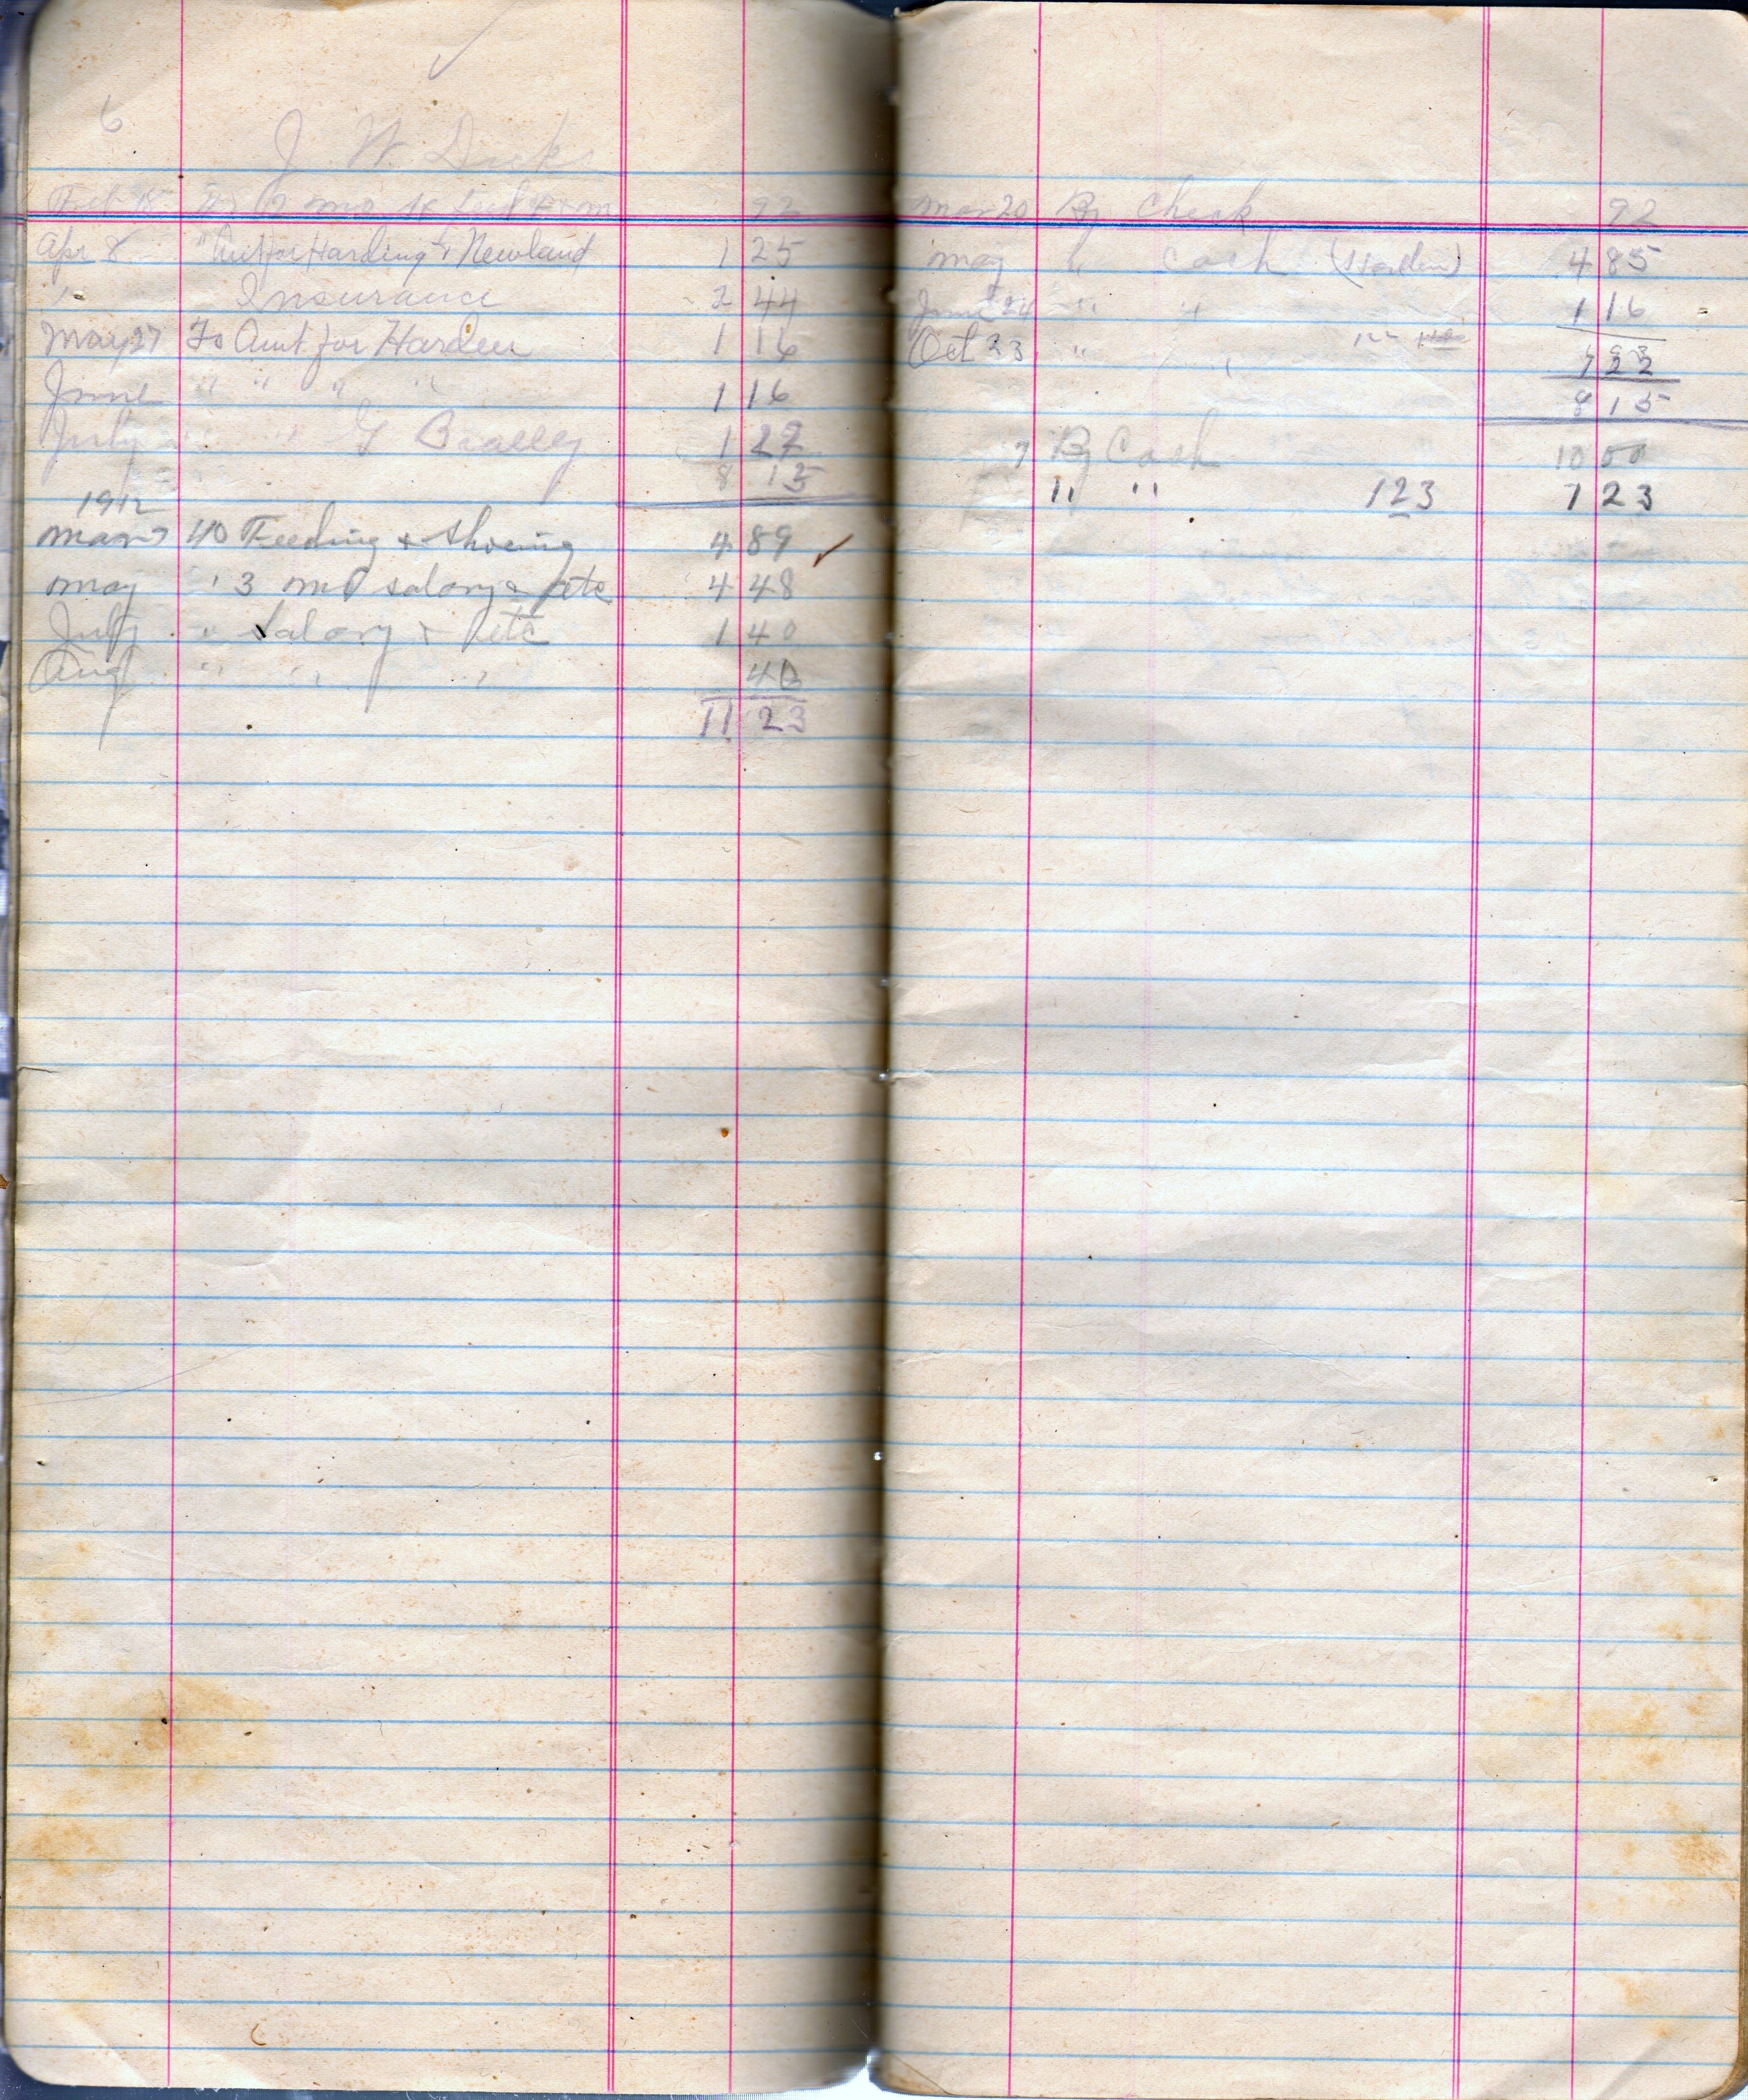 6
J. W. Dicks
92
Apr 8 " Amt for Harding & Newland 1 25
" Insurance 2 44
May 27 To Amt for Harden 1 16
June " " " " 1 16
July " " G Bralley 1 22
8 15
1912
Mar 7 To Feeding & Shoeing 4 89
May " 3 mo salary & etc 4 48
July " Salary & etc 1 40
Aug " " " 46
11 23
Mar 20 By Check 92
May " Cash (Harden) 4 85
June 24 " " 1 16
Oct 23 " "
1 22
8 15
7 By Cash 10 00
" " 123 1 23